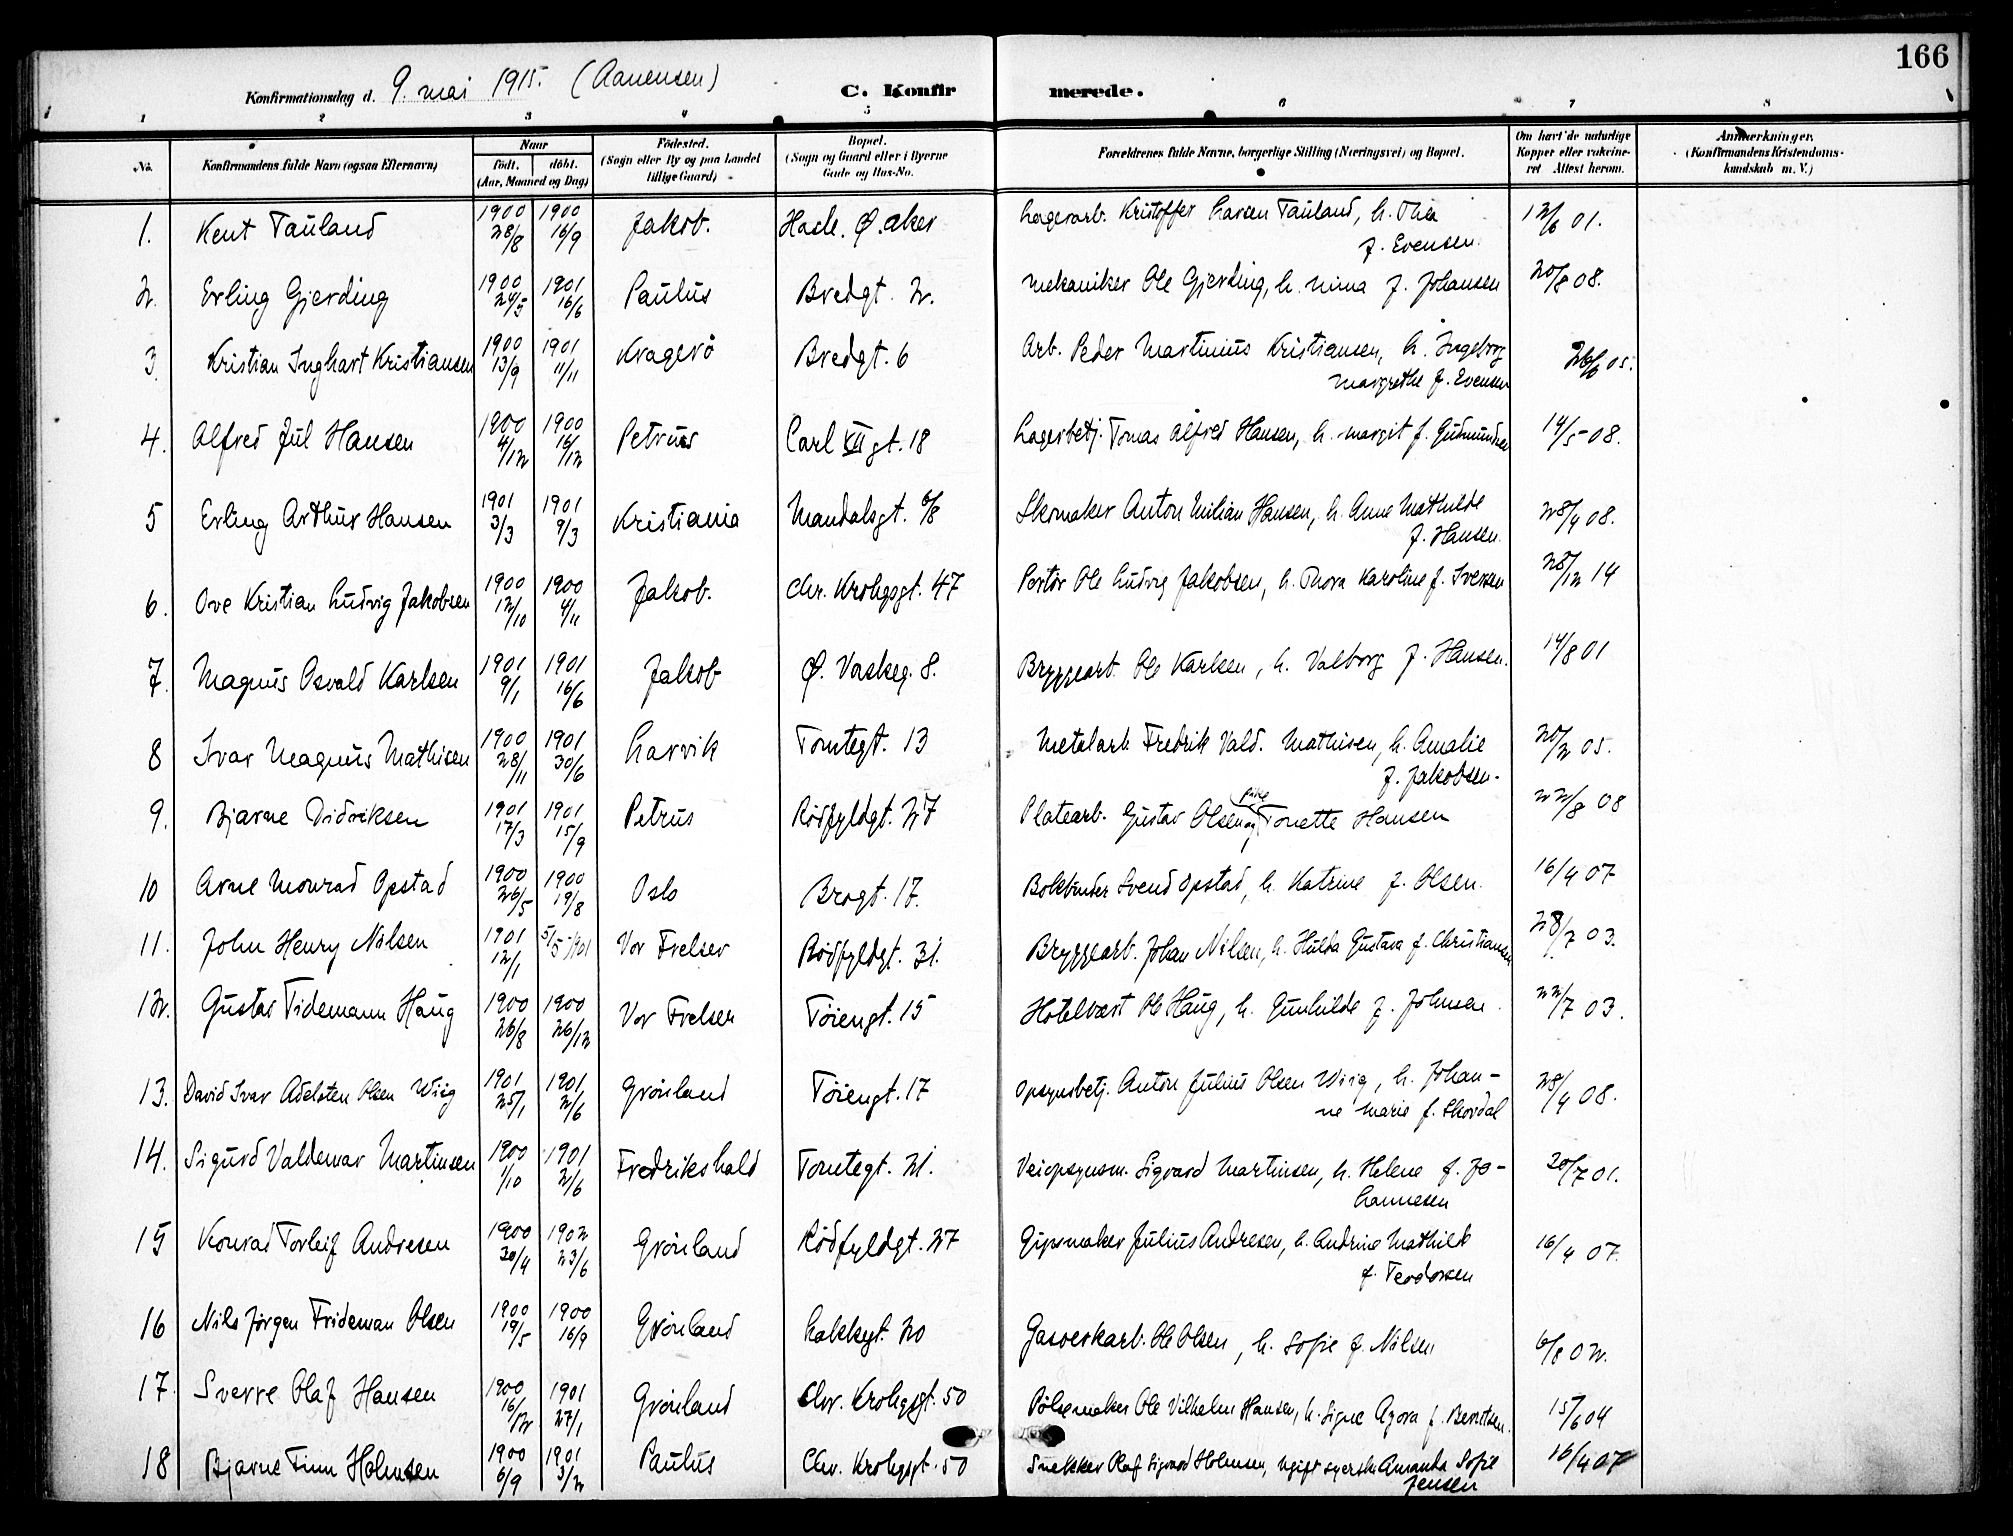 166
Konfirmationsdag d. 9. mai 1915. (Aanensen) C. Konfirmerede.
1 2 3 4 5 6 7 8
No. Konfirmandens fulde Navn (ogsaa Efternavn) Naar født. døbt. (Aar, Maaned og Dag) Fødested. (Sogn eller By og paa Landet tillige Gaard) Bopæl. (Sogn og Gaard eller i Byerne Gade og Hus-No. Forældrenes fulde Navne, borgerlige Stilling (Næringsvei) og Bopæl. Om havt de naturlige Kopper eller vakcineret Attest herom. Anmærkninger. (Konfirmandens Kristendomskundskab m. V.)
1. Kent Tauland 1900 28/8 1900 16/9 Jakob. Hasle. Ø. aker Lagerarb. Kristoffer Larsen Tauland, h. Thea f. Evensen. 12/6 01.
2. Erling Gjerding 1900 24/5 1901 16/6 Paulus Bredgt. 2. Mekaniker Ole Gjerding, h. Mina f. Johansen 20/8 08.
3. Kristian Inghart Kristiansen 1900 13/9 1901 11/11 Kragerö Bredgt. 6 Arb. Peder Martinius Kristiansen, h. Ingeborg Margrethe f. Evensen 26/6 05.
4. Alfred Jul Hansen 1900 4/12 1900 16/12 Petrus Carl XII gt. 18 Lagerbetj. Tomas Alfred Hansen, h. Margit f. Gudmundsen 14/5 08.
5 Erling Arthur Hansen 1901 3/3 1901 9/3 Kristiania Mandalsgt. 6/8 Skomaker Anton Milian Hansen, h. Anne Mathilde f. Hansen. 28/4 08.
6. Ove Kristian Ludvig Jakobsen 1900 12/10 1900 4/11 Jakob. Chr. Krohgsgt. 47 Portör Ole Ludvig Jakobsen, h. Thora Karoline f. Iversen 28/12 14
7. Magnus Osvald Karlsen 1901 9/1 1901 16/6 Jakob Ø. Vaskeg. 8. Bryggearb. Ole Karlsen, h. Valborg f. Hansen. 14/8 01
8 Ivar Magnus Mathisen 1900 28/11 1901 30/6 Larvik Tomtegt. 13 Metalarb. Fredrik Vald. Mathisen, h. Amalie f. Jakobsen. 20/2 05.
9. Bjarne Didriksen 1901 17/3 1901 15/9 Petrus Rödfyldgt. 27 Platearb. Gustav Olsen og pike Tonette Hansen 22/8 08
10 Arne Monrad Opstad 1900 26/5 1900 19/8 Oslo Brogt. 17. Bokbinder Svend Opstad, h. Katrine f. Olsen. 16/4 07
11. John Henry Nilsen 1901 12/1 5/5-1901 Vor Frelser Rödfyldgt. 31. Bryggearb. Johan Nilsen, h. Hulda Gustava f. Christiansen 28/7 03.
12. Gustav Tidemann Haug 1900 26/8 1900 26/12 Vor Frelser Töiengt. 15 Hotelvært Ole Haug, h. Gunhilde f. Johnsen. 22/7 03.
13. David Ivar Adelsten Olsen Wiig 1901 25/1 1901 2/6 Grönland Töiengt. 17 Opsynsbetj. Anton Julius Olsen Wiig, h. Johanne Marie f. Skordal 28/4 08.
14. Sigurd Valdemar Martinsen 1900 1/10 1901 2/6 Fredrikshald Tomtegt. 21. Veiopsynsm. Sigvard Martinsen, h. Helene f. Johannesen 20/7 01.
15 Konrad Torleif Andresen 1900 30/4 1902 23/6 Grönland Rödfyldgt. 27 Gipsmaker Julius Andresen, h. Andrine Mathilde f. Teodorsen 16/4 07.
16 Nils Jørgen Frideman Olsen 1900 19/5 1900 16/9 Grönland Lakkegt. 20 Gasverkarb. Ole Olsen, h. Sofie f. Nilsen 6/8 02.
17. Sverre Olaf Hansen 1900 16/12 1901 27/1 Grönland Chr. Krohgsgt. 50 Pölsemaker Ole Vilhelm Hansen, h. Signe Agora f. Berntsen. 15/6 04
18 Bjarne Finn Holmsen 1900 6/9 1901 3/2 Paulus Chr. Krohgsgt. 50 Snekker Olaf Sigvard Holmsen, ugift syerske Amanda Sofie Jensen 16/4 07